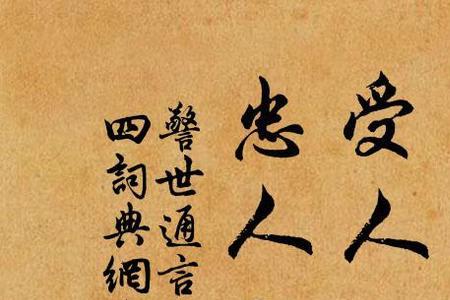 受人
忠人
警世通言
四詞典網